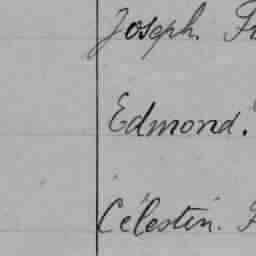 Joseph.
Edmond.
Célestin.